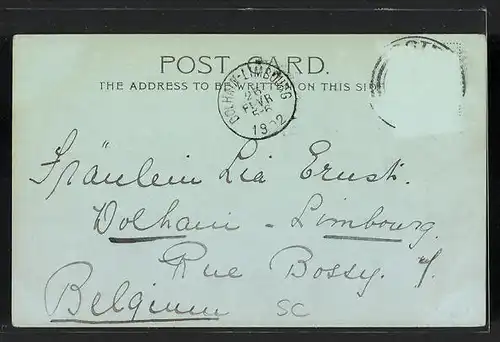 POST CARD.
THE ADDRESS TO BE WRITTEN ON THIS SIDE
DOLHAIN-LIMBOURG
26
FEVR
1902
Fräulein Lia Ernst.
Dolhain - Limbourg.
Rue Bossy. 7.
Belgium
SC